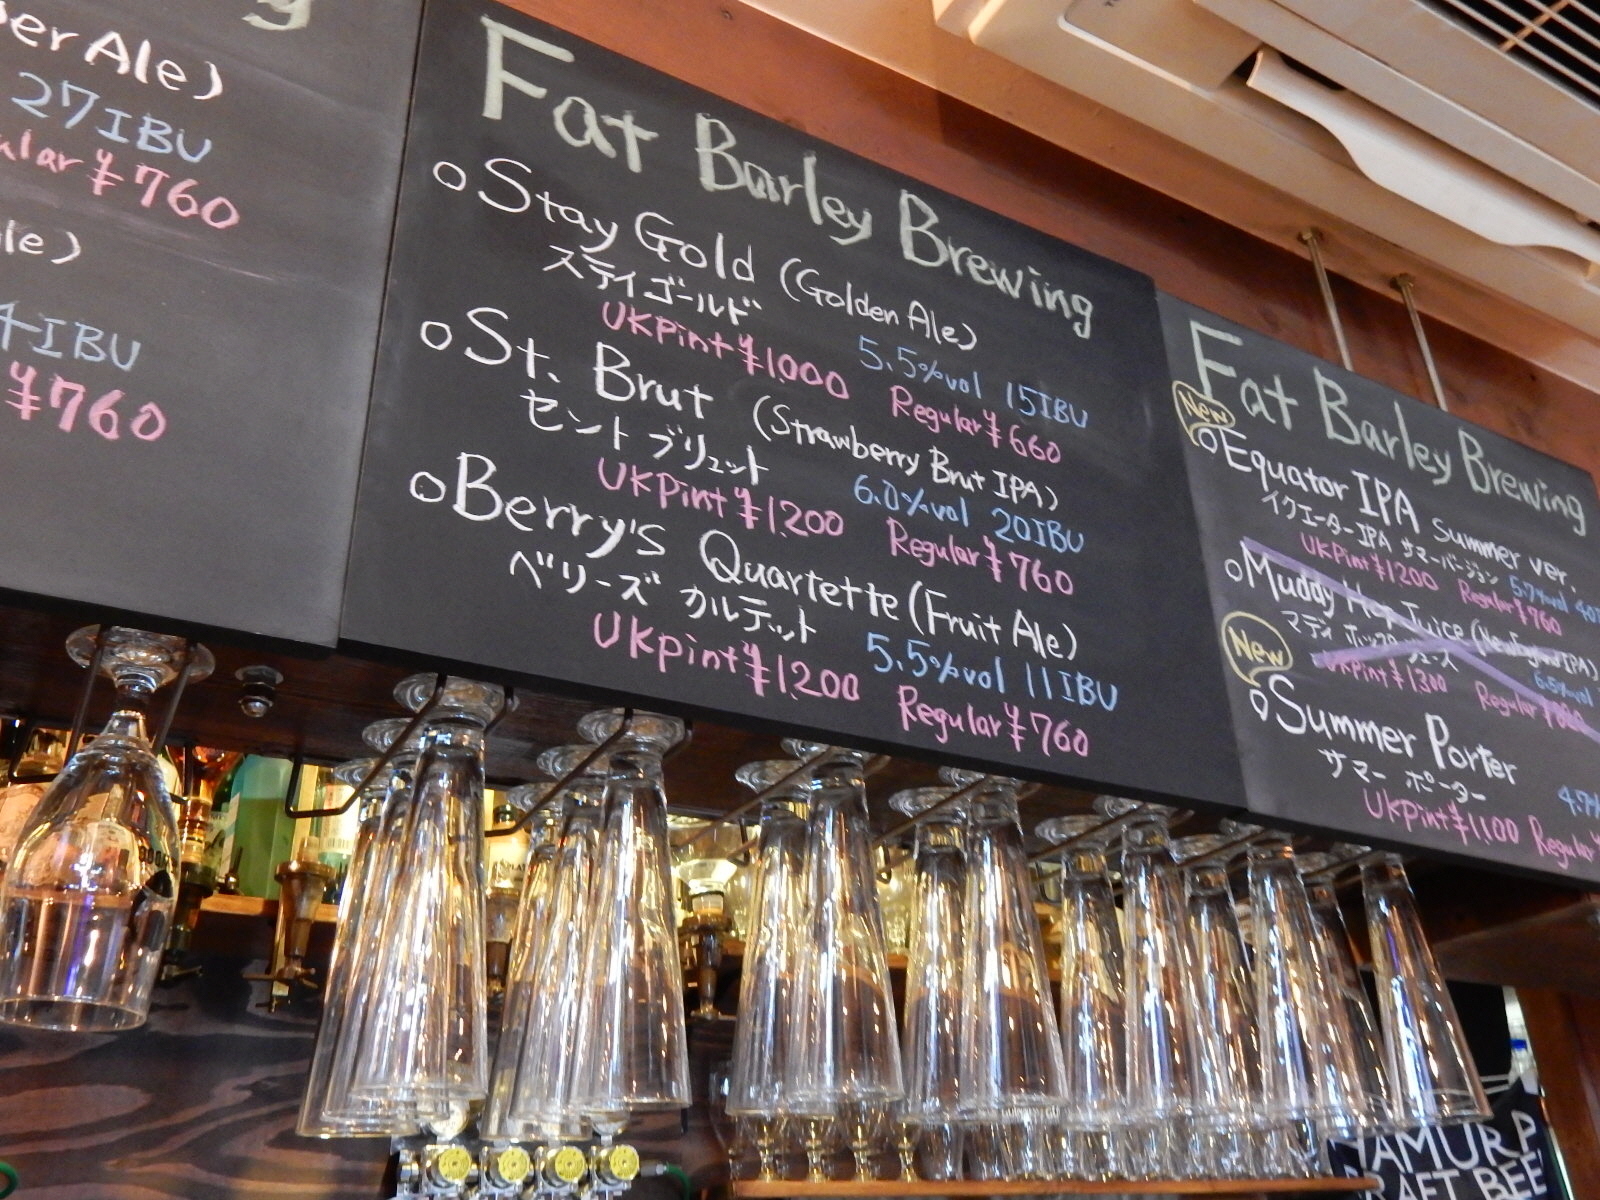 er Ale)
27IBU
ular ¥760
le)
4IBU
¥760
Fat Barley Brewing
o Stay Gold (Golden Ale)
ステイゴールド
5.5%vol 15IBU
UKPint ¥1,000 Regular ¥660
o St. Brut (Strawberry Brut IPA)
セント ブリュット
6.0%vol 20IBU
UKPint ¥1,200 Regular ¥760
o Berry's Quartette (Fruit Ale)
ベリーズ カルテット
5.5%vol 11IBU
UKpint ¥1,200 Regular ¥760
Fat Barley Brewing
New
o Equator IPA Summer ver.
イクエーターIPA サマーバージョン 5.7%vol
UKPint ¥1200 Regular ¥760
o Muddy Hop Juice (NewEngland IPA)
マディ ホップ ジュース
UKPint ¥1300 Regular
New
o Summer Porter
サマー ポーター
UKPint ¥1,100 Regular